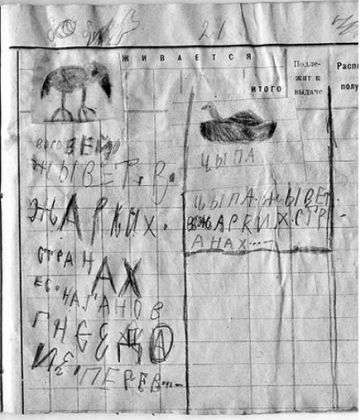 21
ЖИВАЕТСЯ
ИТОГО
Подле-
жит к
выдаче
Расп
полу
ВОРОВЕЙ
ЖЫВЕТ. В.
ЖАРКИХ.
СТРАНАХ
ЕГО. НАГАНОВ
ГНЕЕЗДО
ИЗ. ПЕРЕВ...
ЦЫПА
ЦЫПА. ЖЫВЕТ.
В ЖАРКИХ. СТР
АНАХ...